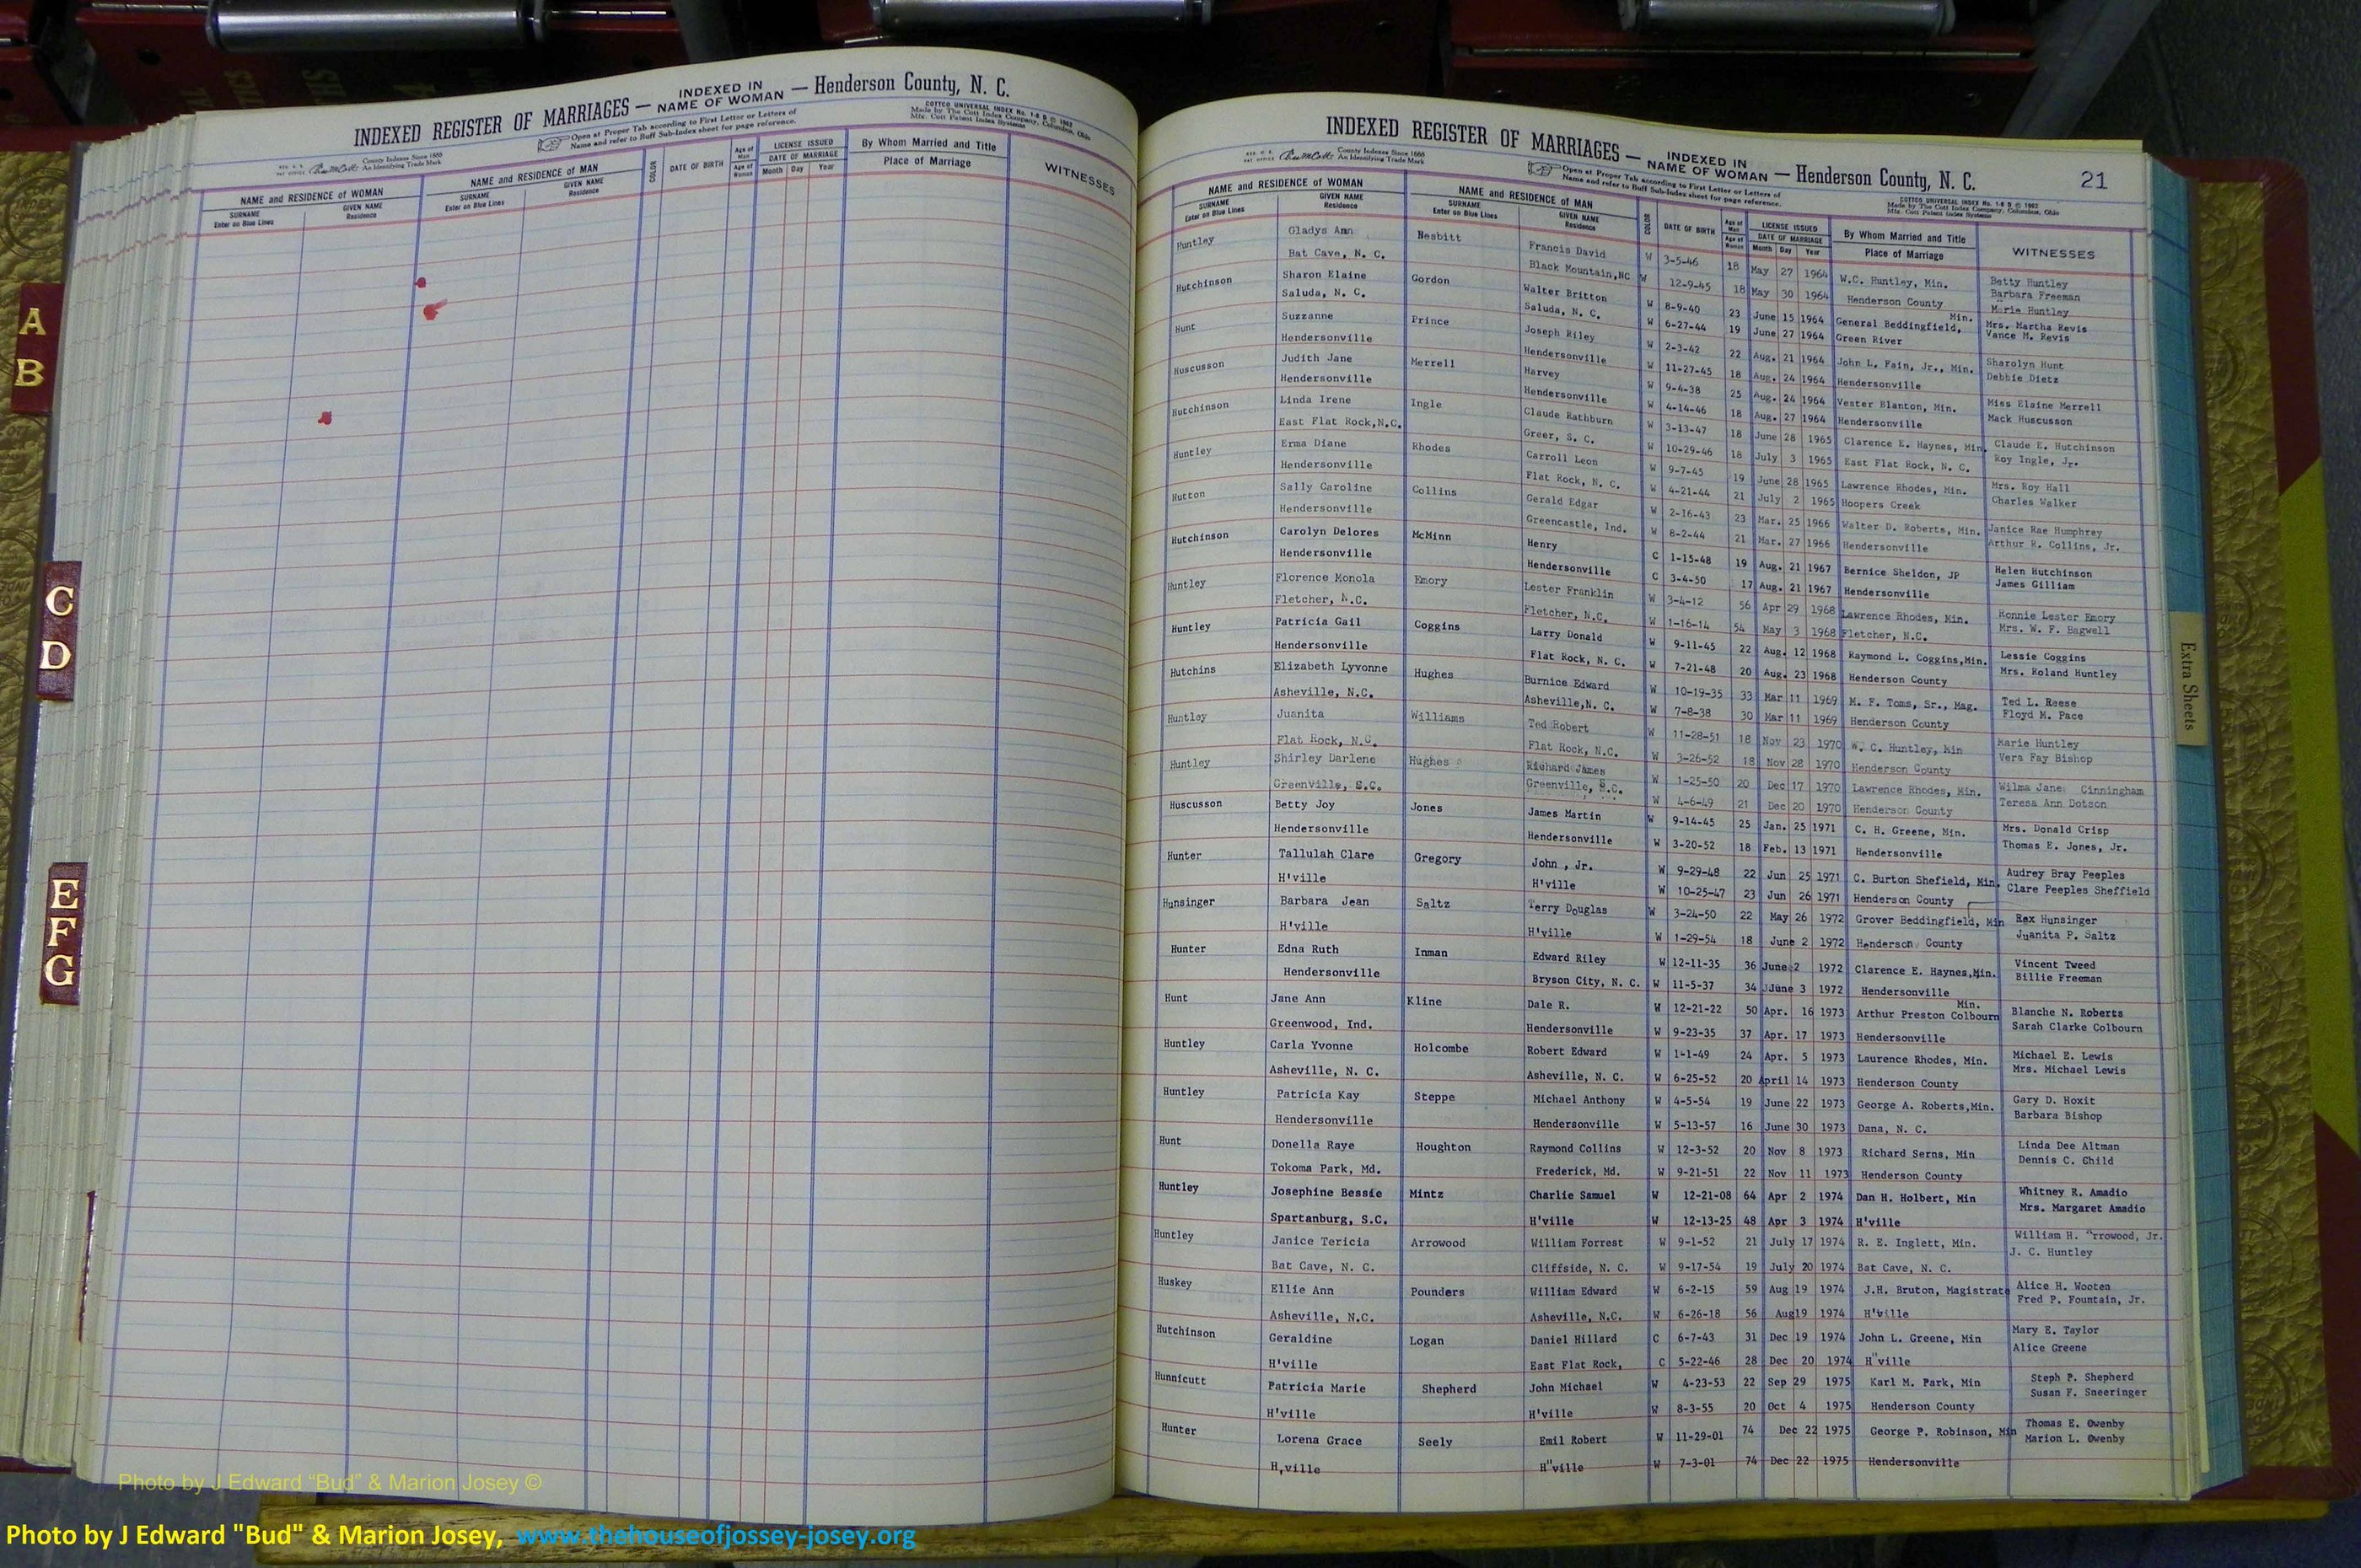 INDEXED REGISTER OF MARRIAGES — INDEXED IN NAME OF WOMAN — Henderson County, N. C.
Open at Proper Tab according to First Letter or Letters of
Name and refer to Buff Sub-Index sheet for page reference.
COTTCO UNIVERSAL INDEX No. 1-8 D © 1962
Made by The Cott Index Company, Columbus, Ohio
Mfrs. Cott Patent Index Systems
County Indexes Since 1888
An Identifying Trade Mark
NAME and RESIDENCE OF WOMAN
SURNAME
Enter on Blue Lines
GIVEN NAME
Residence
NAME and RESIDENCE OF MAN
SURNAME
Enter on Blue Lines
GIVEN NAME
Residence
COLOR
DATE OF BIRTH
Age of Man
Age of Woman
LICENSE ISSUED
DATE OF MARRIAGE
Month Day Year
By Whom Married and Title
Place of Marriage
WITNESSES
A
B
C
D
E
F
G
INDEXED REGISTER OF MARRIAGES — INDEXED IN NAME OF WOMAN — Henderson County, N. C. 21
County Indexes Since 1888
An Identifying Trade Mark
Open at Proper Tab according to First Letter or Letters of
Name and refer to Buff Sub-Index sheet for page reference.
COTTCO UNIVERSAL INDEX No. 1-8 D © 1962
Made by The Cott Index Company, Columbus, Ohio
Mfrs. Cott Patent Index Systems
NAME and RESIDENCE OF WOMAN
SURNAME
Enter on Blue Lines
GIVEN NAME
Residence
NAME and RESIDENCE OF MAN
SURNAME
Enter on Blue Lines
GIVEN NAME
Residence
COLOR
DATE OF BIRTH
Age of Man
Age of Woman
LICENSE ISSUED
DATE OF MARRIAGE
Month Day Year
By Whom Married and Title
Place of Marriage
WITNESSES
Huntley Gladys Ann Nesbitt Francis David W 3-5-46 18 May 27 1964 W.C. Huntley, Min. Betty Huntley
Barbara Freeman
Bat Cave, N. C. Black Mountain,NC W 12-9-45 18 May 30 1964 Henderson County Marie Huntley
Hutchinson Sharon Elaine Gordon Walter Britton W 8-9-40 23 June 15 1964 General Beddingfield, Min. Mrs. Martha Revis
Saluda, N. C. Saluda, N. C. W 6-27-44 19 June 27 1964 Green River Vance M. Revis
Hunt Suzzanne Prince Joseph Riley W 2-3-42 22 Aug. 21 1964 John L. Fain, Jr., Min. Sharolyn Hunt
Hendersonville Hendersonville W 11-27-45 18 Aug. 24 1964 Hendersonville Debbie Dietz
Huscusson Judith Jane Merrell Harvey W 9-4-38 25 Aug. 24 1964 Vester Blanton, Min. Miss Elaine Merrell
Hendersonville Hendersonville W 4-14-46 18 Aug. 27 1964 Hendersonville Mack Huscusson
Hutchinson Linda Irene Ingle Claude Rathburn W 3-13-47 18 June 28 1965 Clarence E. Haynes, Min. Claude E. Hutchinson
East Flat Rock,N.C. Greer, S. C. W 10-29-46 18 July 3 1965 East Flat Rock, N. C. Roy Ingle, Jr.
Huntley Erma Diane Rhodes Carroll Leon W 9-7-45 19 June 28 1965 Lawrence Rhodes, Min. Mrs. Roy Hall
Hendersonville Flat Rock, N. C. W 4-21-44 21 July 2 1965 Hoopers Creek Charles Walker
Hutton Sally Caroline Collins Gerald Edgar W 2-16-43 23 Mar. 25 1966 Walter D. Roberts, Min. Janice Rae Humphrey
Hendersonville Greencastle, Ind. W 8-2-44 21 Mar. 27 1966 Hendersonville Arthur R. Collins, Jr.
Hutchinson Carolyn Delores McMinn Henry C 1-15-48 19 Aug. 21 1967 Bernice Sheldon, JP Helen Hutchinson
Hendersonville Hendersonville C 3-4-50 17 Aug. 21 1967 Hendersonville James Gilliam
Huntley Florence Monola Emory Lester Franklin W 3-4-12 56 Apr 29 1968 Lawrence Rhodes, Min. Ronnie Lester Emory
Fletcher, N.C. Fletcher, N.C. W 1-16-14 54 May 3 1968 Fletcher, N.C. Mrs. W. F. Bagwell
Huntley Patricia Gail Coggins Larry Donald W 9-11-45 22 Aug. 12 1968 Raymond L. Coggins,Min. Lessie Coggins
Hendersonville Flat Rock, N. C. W 7-21-48 20 Aug. 23 1968 Henderson County Mrs. Roland Huntley
Hutchins Elizabeth Lyvonne Hughes Burnice Edward W 10-19-35 33 Mar 11 1969 M. F. Toms, Sr., Mag. Ted L. Reese
Asheville, N.C. Asheville,N. C. W 7-8-38 30 Mar 11 1969 Henderson County Floyd M. Pace
Huntley Juanita Williams Ted Robert W 11-28-51 18 Nov 23 1970 W. C. Huntley, Min Marie Huntley
Flat Rock, N.C. Flat Rock, N.C. W 3-26-52 18 Nov 28 1970 Henderson County Vera Fay Bishop
Huntley Shirley Darlene Hughes Richard James W 1-25-50 20 Dec 17 1970 Lawrence Rhodes, Min. Wilma Jane Cinningham
Greenville, S.C. Greenville, S.C. W 4-6-49 21 Dec 20 1970 Henderson County Teresa Ann Dotson
Huscusson Betty Joy Jones James Martin W 9-14-45 25 Jan. 25 1971 C. H. Greene, Min. Mrs. Donald Crisp
Hendersonville Hendersonville W 3-20-52 18 Feb. 13 1971 Hendersonville Thomas E. Jones, Jr.
Hunter Tallulah Clare Gregory John , Jr. W 9-29-48 22 Jun 25 1971 C. Burton Shefield, Min. Audrey Bray Peeples
H'ville H'ville W 10-25-47 23 Jun 26 1971 Henderson County Clare Peeples Sheffield
Hunsinger Barbara Jean Saltz Terry Douglas W 3-24-50 22 May 26 1972 Grover Beddingfield, Min Rex Hunsinger
H'ville H'ville W 1-29-54 18 June 2 1972 Henderson County Juanita P. Saltz
Hunter Edna Ruth Inman Edward Riley W 12-11-35 36 June 2 1972 Clarence E. Haynes,Min. Vincent Tweed
Hendersonville Bryson City, N. C. W 11-5-37 34 June 3 1972 Hendersonville Billie Freeman
Hunt Jane Ann Kline Dale R. W 12-21-22 50 Apr. 16 1973 Arthur Preston Colbourn Min. Blanche N. Roberts
Greenwood, Ind. Hendersonville W 9-23-35 37 Apr. 17 1973 Hendersonville Sarah Clarke Colbourn
Huntley Carla Yvonne Holcombe Robert Edward W 1-1-49 24 Apr. 5 1973 Laurence Rhodes, Min. Michael E. Lewis
Asheville, N. C. Asheville, N. C. W 6-25-52 20 April 14 1973 Henderson County Mrs. Michael Lewis
Huntley Patricia Kay Steppe Michael Anthony W 4-5-54 19 June 22 1973 George A. Roberts,Min. Gary D. Hoxit
Hendersonville Hendersonville W 5-13-57 16 June 30 1973 Dana, N. C. Barbara Bishop
Hunt Donella Raye Houghton Raymond Collins W 12-3-52 20 Nov 8 1973 Richard Serns, Min Linda Dee Altman
Tokoma Park, Md. Frederick, Md. W 9-21-51 22 Nov 11 1973 Henderson County Dennis C. Child
Huntley Josephine Bessie Mintz Charlie Samuel W 12-21-08 64 Apr 2 1974 Dan H. Holbert, Min Whitney R. Amadio
Spartanburg, S.C. H'ville W 12-13-25 48 Apr 3 1974 H'ville Mrs. Margaret Amadio
Huntley Janice Tericia Arrowood William Forrest W 9-1-52 21 July 17 1974 R. E. Inglett, Min. William H. "rrowood, Jr.
Bat Cave, N. C. Cliffside, N. C. W 9-17-54 19 July 20 1974 Bat Cave, N. C. J. C. Huntley
Huskey Ellie Ann Pounders William Edward W 6-2-15 59 Aug 19 1974 J.H. Bruton, Magistrate Alice H. Wooten
Asheville, N.C. Asheville, N.C. W 6-26-18 56 Aug19 1974 H'ville Fred P. Fountain, Jr.
Hutchinson Geraldine Logan Daniel Hillard C 6-7-43 31 Dec 19 1974 John L. Greene, Min Mary E. Taylor
H'ville East Flat Rock, C 5-22-46 28 Dec 20 1974 H"ville Alice Greene
Hunnicutt Patricia Marie Shepherd John Michael W 4-23-53 22 Sep 29 1975 Karl M. Park, Min Steph P. Shepherd
H'ville H'ville W 8-3-55 20 Oct 4 1975 Henderson County Susan F. Sneeringer
Hunter Lorena Grace Seely Emil Robert W 11-29-01 74 Dec 22 1975 George P. Robinson, Min Thomas E. Owenby
Marion L. Owenby
H,ville H"ville W 7-3-01 74 Dec 22 1975 Hendersonville
Extra Sheets
Photo by J Edward "Bud" & Marion Josey ©
Photo by J Edward "Bud" & Marion Josey, www.thehouseofjossey-josey.org